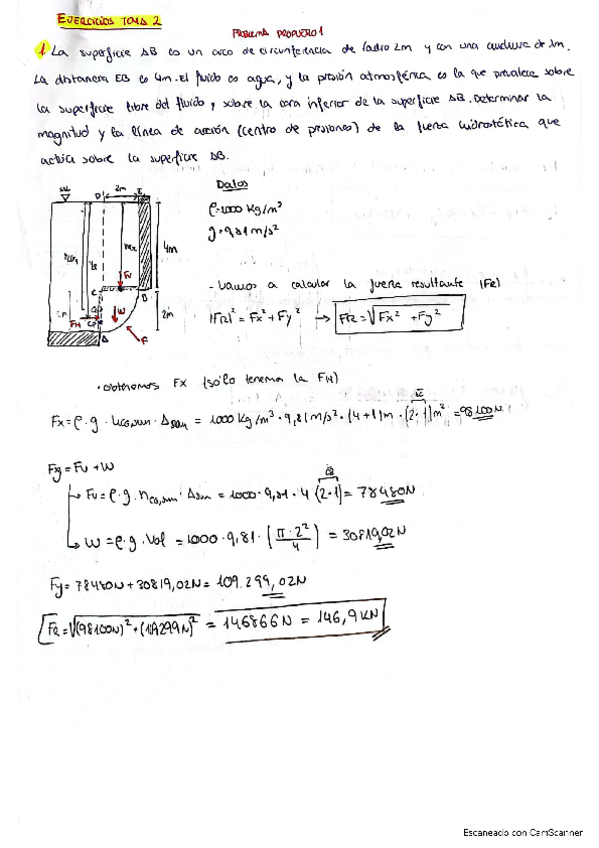 EJERCICIOS TEMA 2
PROBLEMA PROPUESTO 1
1. La superficie AB es un arco de circunferencia de radio 2m y con una anchura de 1m.
La distancia EB es 4m. El fluido es agua, y la presión atmosférica es la que prevalece sobre
la superficie libre del fluido y sobre la cara inferior de la superficie AB. Determinar la
magnitud y la línea de acción (centro de presiones) de la fuerza hidrostática que
actúa sobre la superficie AB.
D 2m E
4m
Fv
C B
W 2m
FH
A F
Datos
ρ=1000 Kg/m³
g=9,81 m/s²
- Vamos a calcular la fuerza resultante |FR|
|FR|² = Fx² + Fy² → FR = √Fx² + Fy²
• obtenemos Fx (sólo tenemos la FH)
AC
Fx = ρ · g · hCG,sum · Asum = 1000 Kg/m³ · 9,81 m/s² · (4+1)m · (2·1)m² = 98100N
Fy = Fv + W
CB
Fv = ρ · g · hCG,sum · Asum = 1000 · 9,81 · 4 (2·1) = 78480N
W = ρ · g · Vol = 1000 · 9,81 · (π · 2²/4) = 30819,02N
Fy = 78480N + 30819,02N = 109.299,02N
FR = √(98100N)² + (109299N)² = 146866N = 146,9 KN
Escaneado con CamScanner